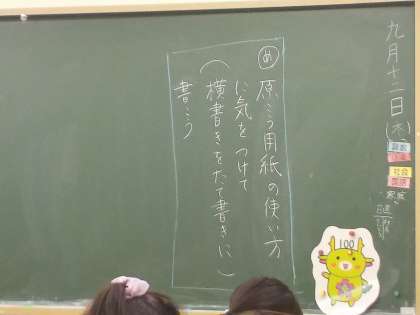 九月十二日(木)
算数
社会
国語
め 原こう用紙の使い方
に気をつけて
(横書きをたて書きに)
書こう
100